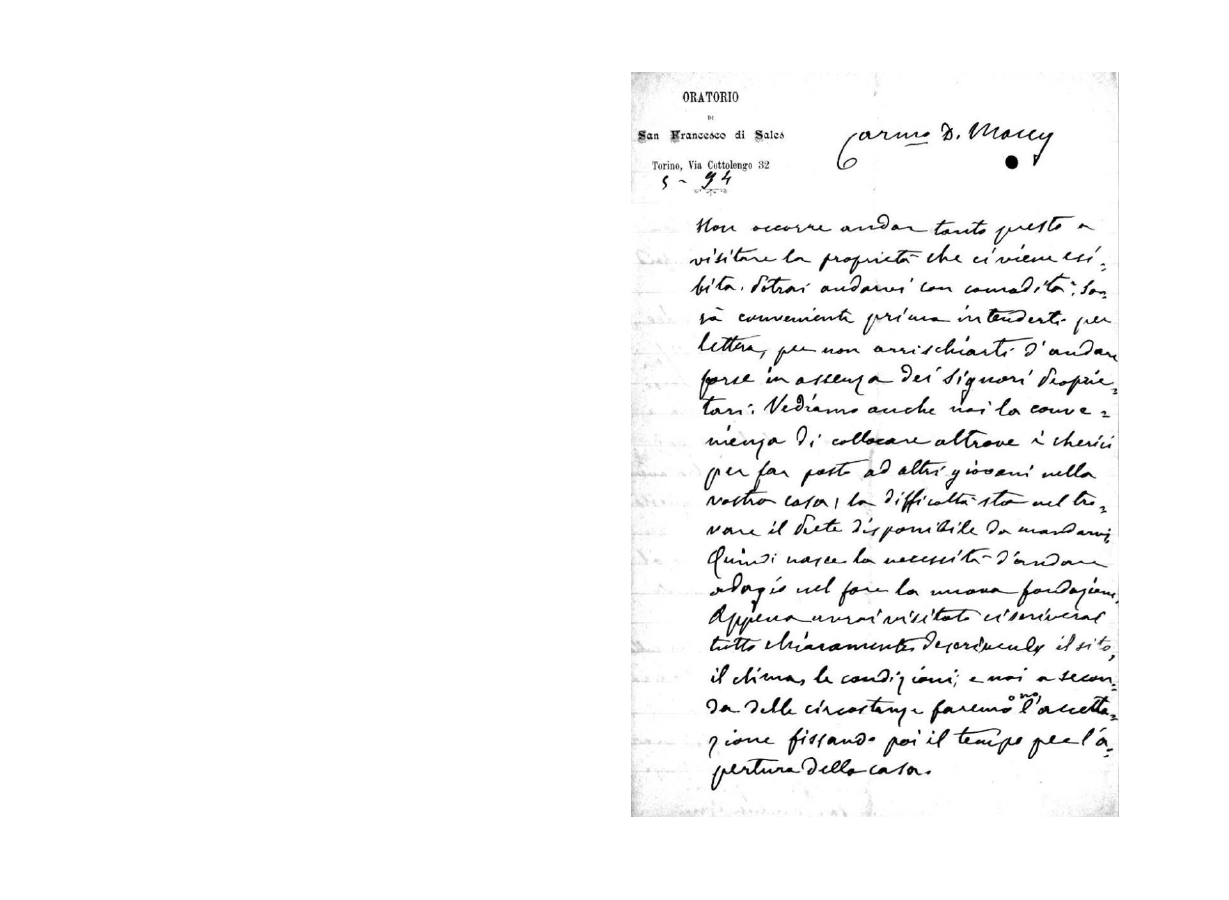 ORATORIO
DI
San Francesco di Sales
Torino, Via Cottolengo 32
5 - 94
Carmo D. Macey
Non occorre andar tanto presto a
visitare la proprietà che ci viene esi=
bita. Potrai andarvi con comodità; sa=
rà conveniente prima intenderti per
lettera, per non arrischiarti d'andare
forse in assenza dei Signori Proprie=
tari. Vediamo anche noi la conve=
nienza di collocare altrove i cherici
per far posto ad altri giovani nella
vostra casa; la difficoltà sta nel tro=
vare il Prete disponibile da mandarvi,
Quindi nasce la necessità d'andare
adagio nel fare la nuova fondazione,
Appena avrai visitato ci scriverai
tutto chiaramente descrivendo il sito,
il clima, le condizioni; e noi a secon=
da delle circostanze faremo o no l'accetta=
zione fissando poi il tempo per l'a=
pertura della casa.